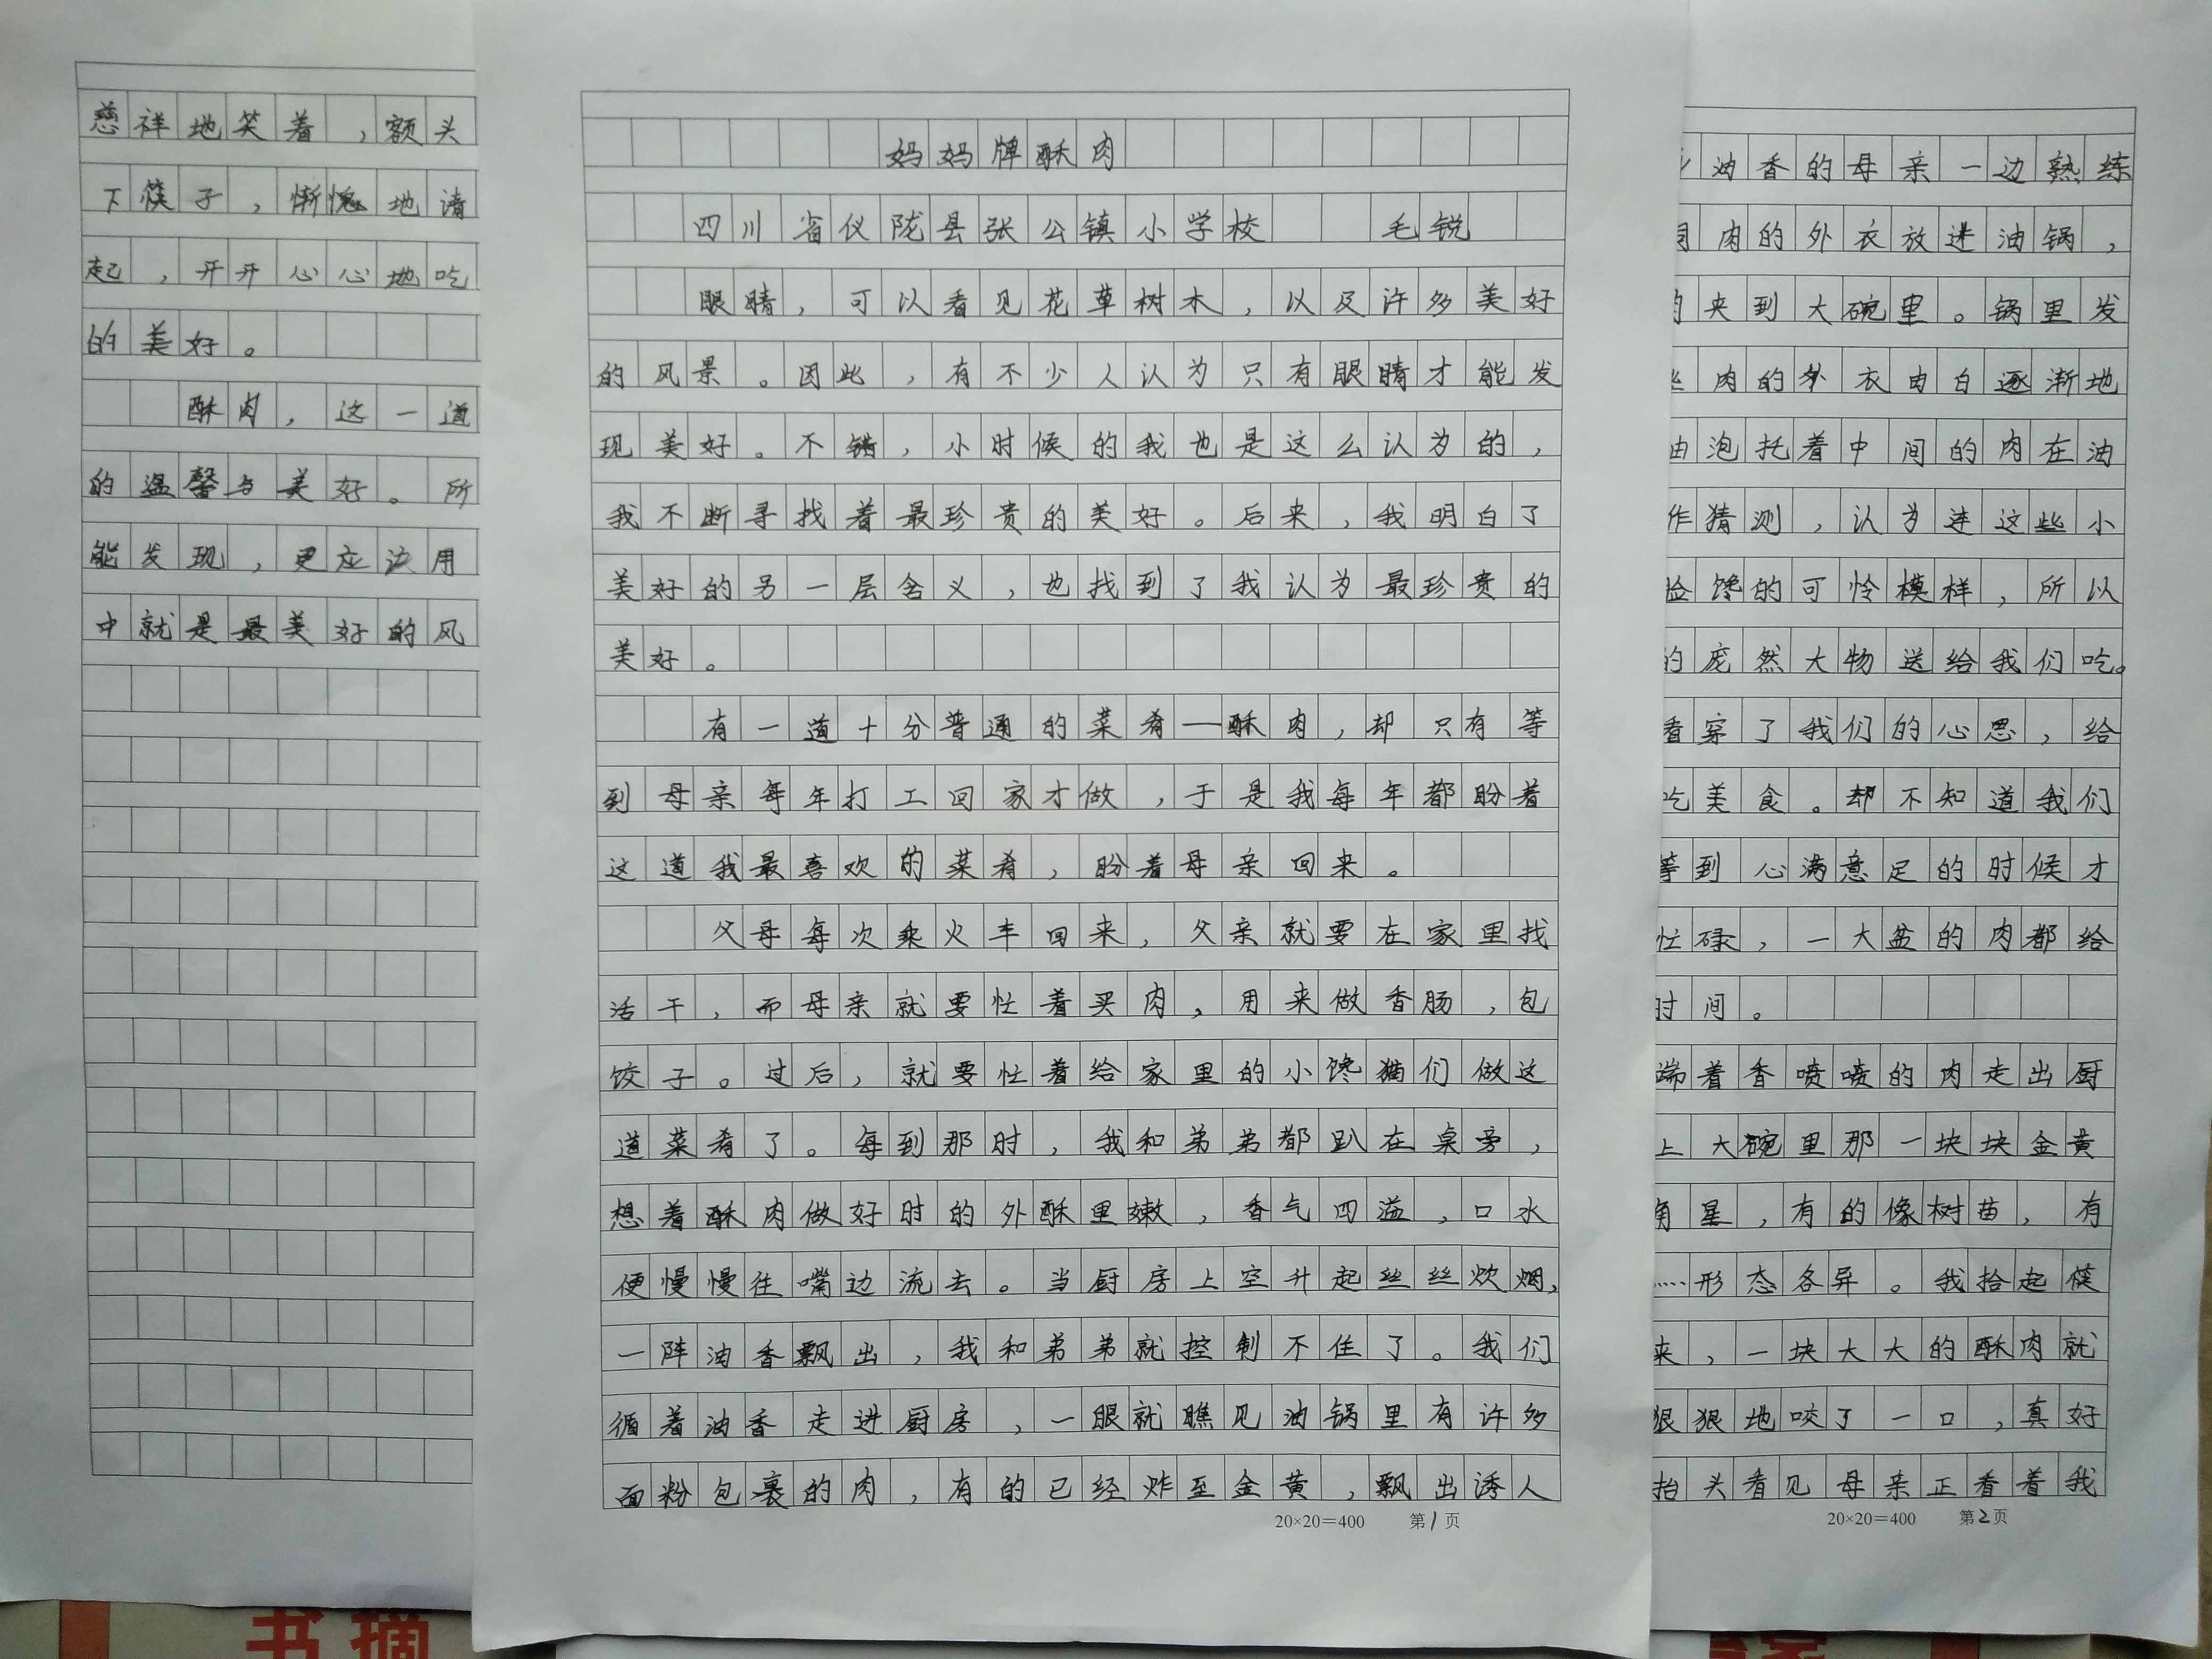 慈祥地笑着，额头
下筷子，惭愧地请
起，开开心心地吃
的美好。
酥肉，这一道
的温馨与美好。所
能发现，更应该用
中就是最美好的风
妈妈牌酥肉
四川省仪陇县张公镇小学校 毛锐
眼睛，可以看见花草树木，以及许多美好
的风景。因此，有不少人认为只有眼睛才能发
现美好。不错，小时候的我也是这么认为的，
我不断寻找着最珍贵的美好。后来，我明白了
美好的另一层含义，也找到了我认为最珍贵的
美好。
有一道十分普通的菜肴——酥肉，却只有等
到母亲每年打工回家才做，于是我每年都盼着
这道我最喜欢的菜肴，盼着母亲回来。
父母每次乘火车回来，父亲就要在家里找
活干，而母亲就要忙着买肉，用来做香肠，包
饺子。过后，就要忙着给家里的小馋猫们做这
道菜肴了。每到那时，我和弟弟都趴在桌旁，
想着酥肉做好时的外酥里嫩，香气四溢，口水
便慢慢往嘴边流去。当厨房上空升起丝丝炊烟，
一阵油香飘出，我和弟弟就控制不住了。我们
循着油香走进厨房，一眼就瞧见油锅里有许多
面粉包裹的肉，有的已经炸至金黄，飘出诱人
20×20=400 第1页
油香的母亲一边熟练
肉的外衣放进油锅，
夹到大碗里。锅里发
肉的外衣由白逐渐地
油泡托着中间的肉在油
作猜测，认为连这些小
脸馋的可怜模样，所以
的庞然大物送给我们吃。
看穿了我们的心思，给
吃美食。却不知道我们
等到心满意足的时候才
忙碌，一大盆的肉都给
时间。
端着香喷喷的肉走出厨
上大碗里那一块块金黄
角星，有的像树苗，有
……形态各异。我拾起筷
来，一块大大的酥肉就
狠狠地咬了一口，真好
抬头看见母亲正看着我
20×20=400 第2页
书摘